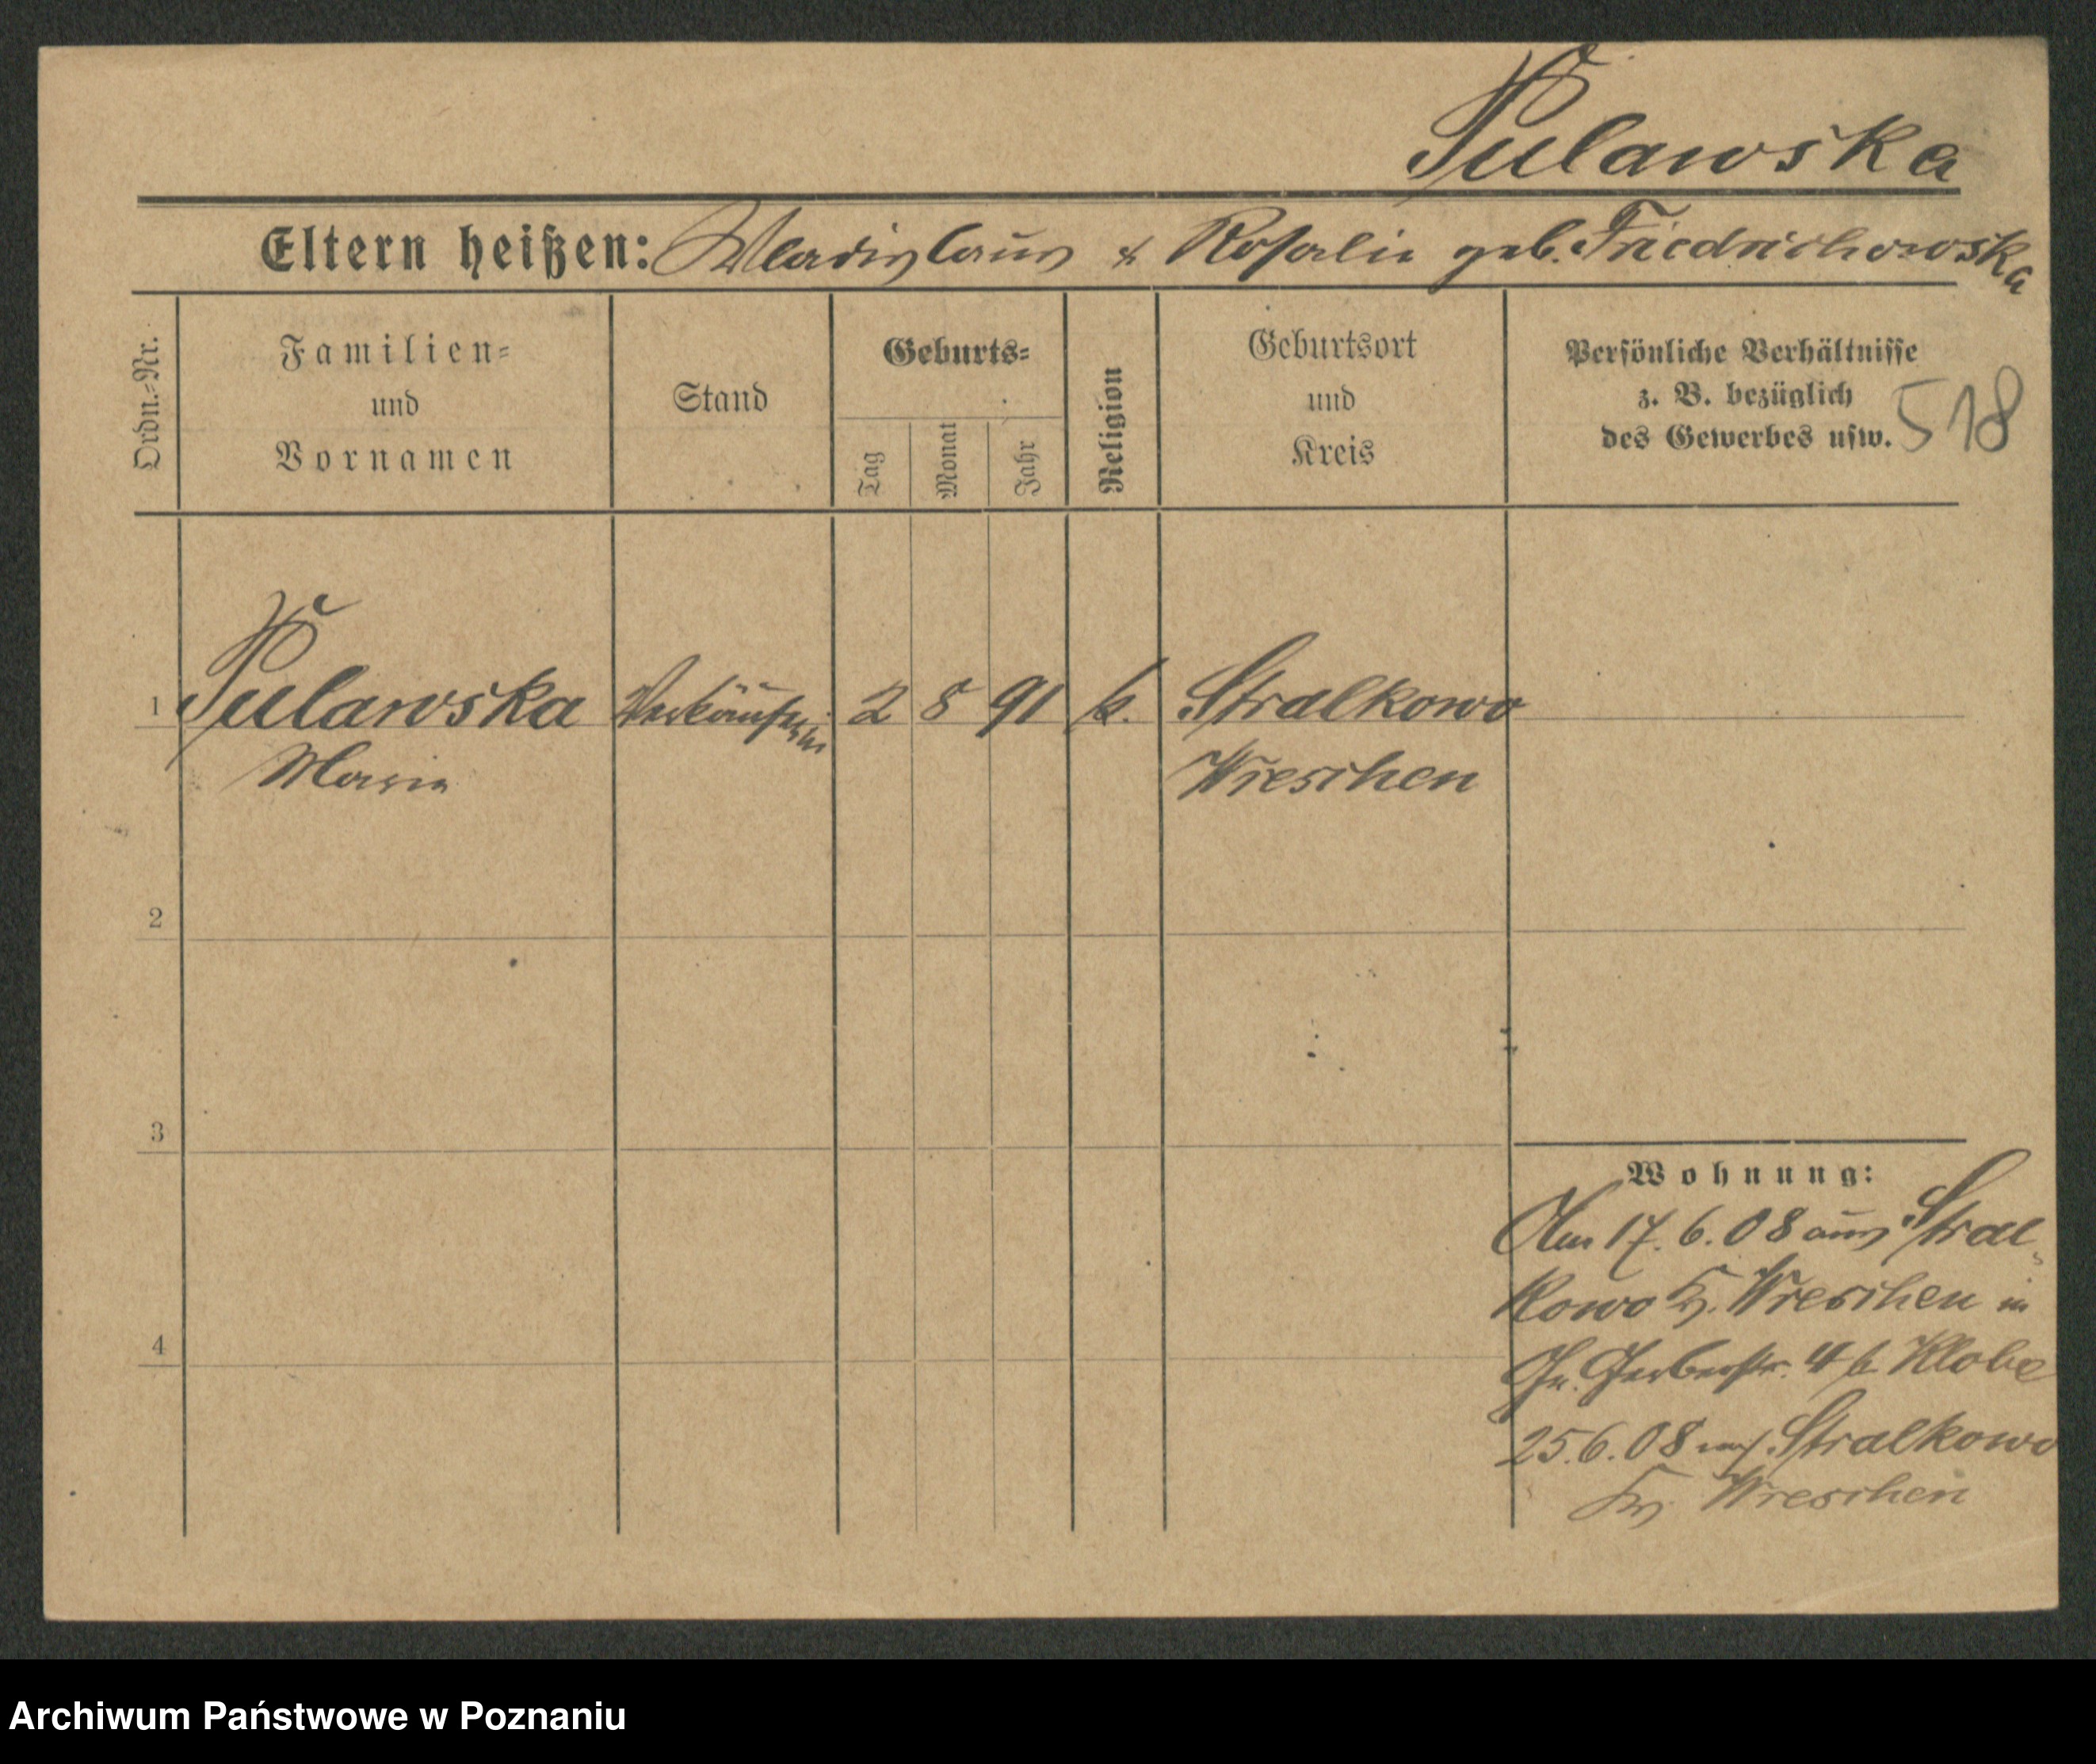 Pulawska
Eltern heißen: Wladislaus & Rosalie geb. Friedrichowska
Ordn.=Nr.
Familien=
und
Vornamen
Stand
Geburts=
Tag
Monat
Jahr
Religion
Geburtsort
und
Kreis
Persönliche Verhältnisse
z. B. bezüglich
des Gewerbes usw.
518
1 Pulawska Verkäuferin 2 8 91 k. Stralkowo
Maria Wreschen
2
3
4
Wohnung:
Am 17. 6. 08 aus Stral-
kowo Kr. Wreschen in
Gr. Gerberstr. 4 b. Klobe
25. 6. 08 nach Stralkowo
Kr. Wreschen
Archiwum Państwowe w Poznaniu